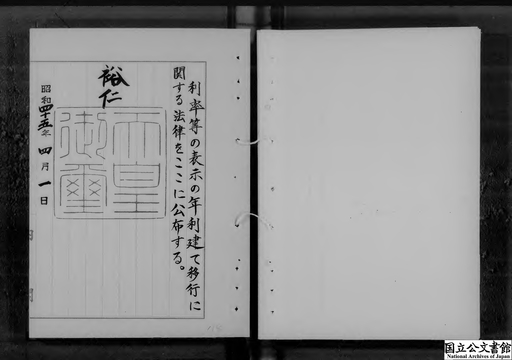 利率等の表示の年利建て移行に
関する法律をここに公布する。
裕仁
天皇
御璽
昭和四十五年四月一日
国立公文書館
National Archives of Japan